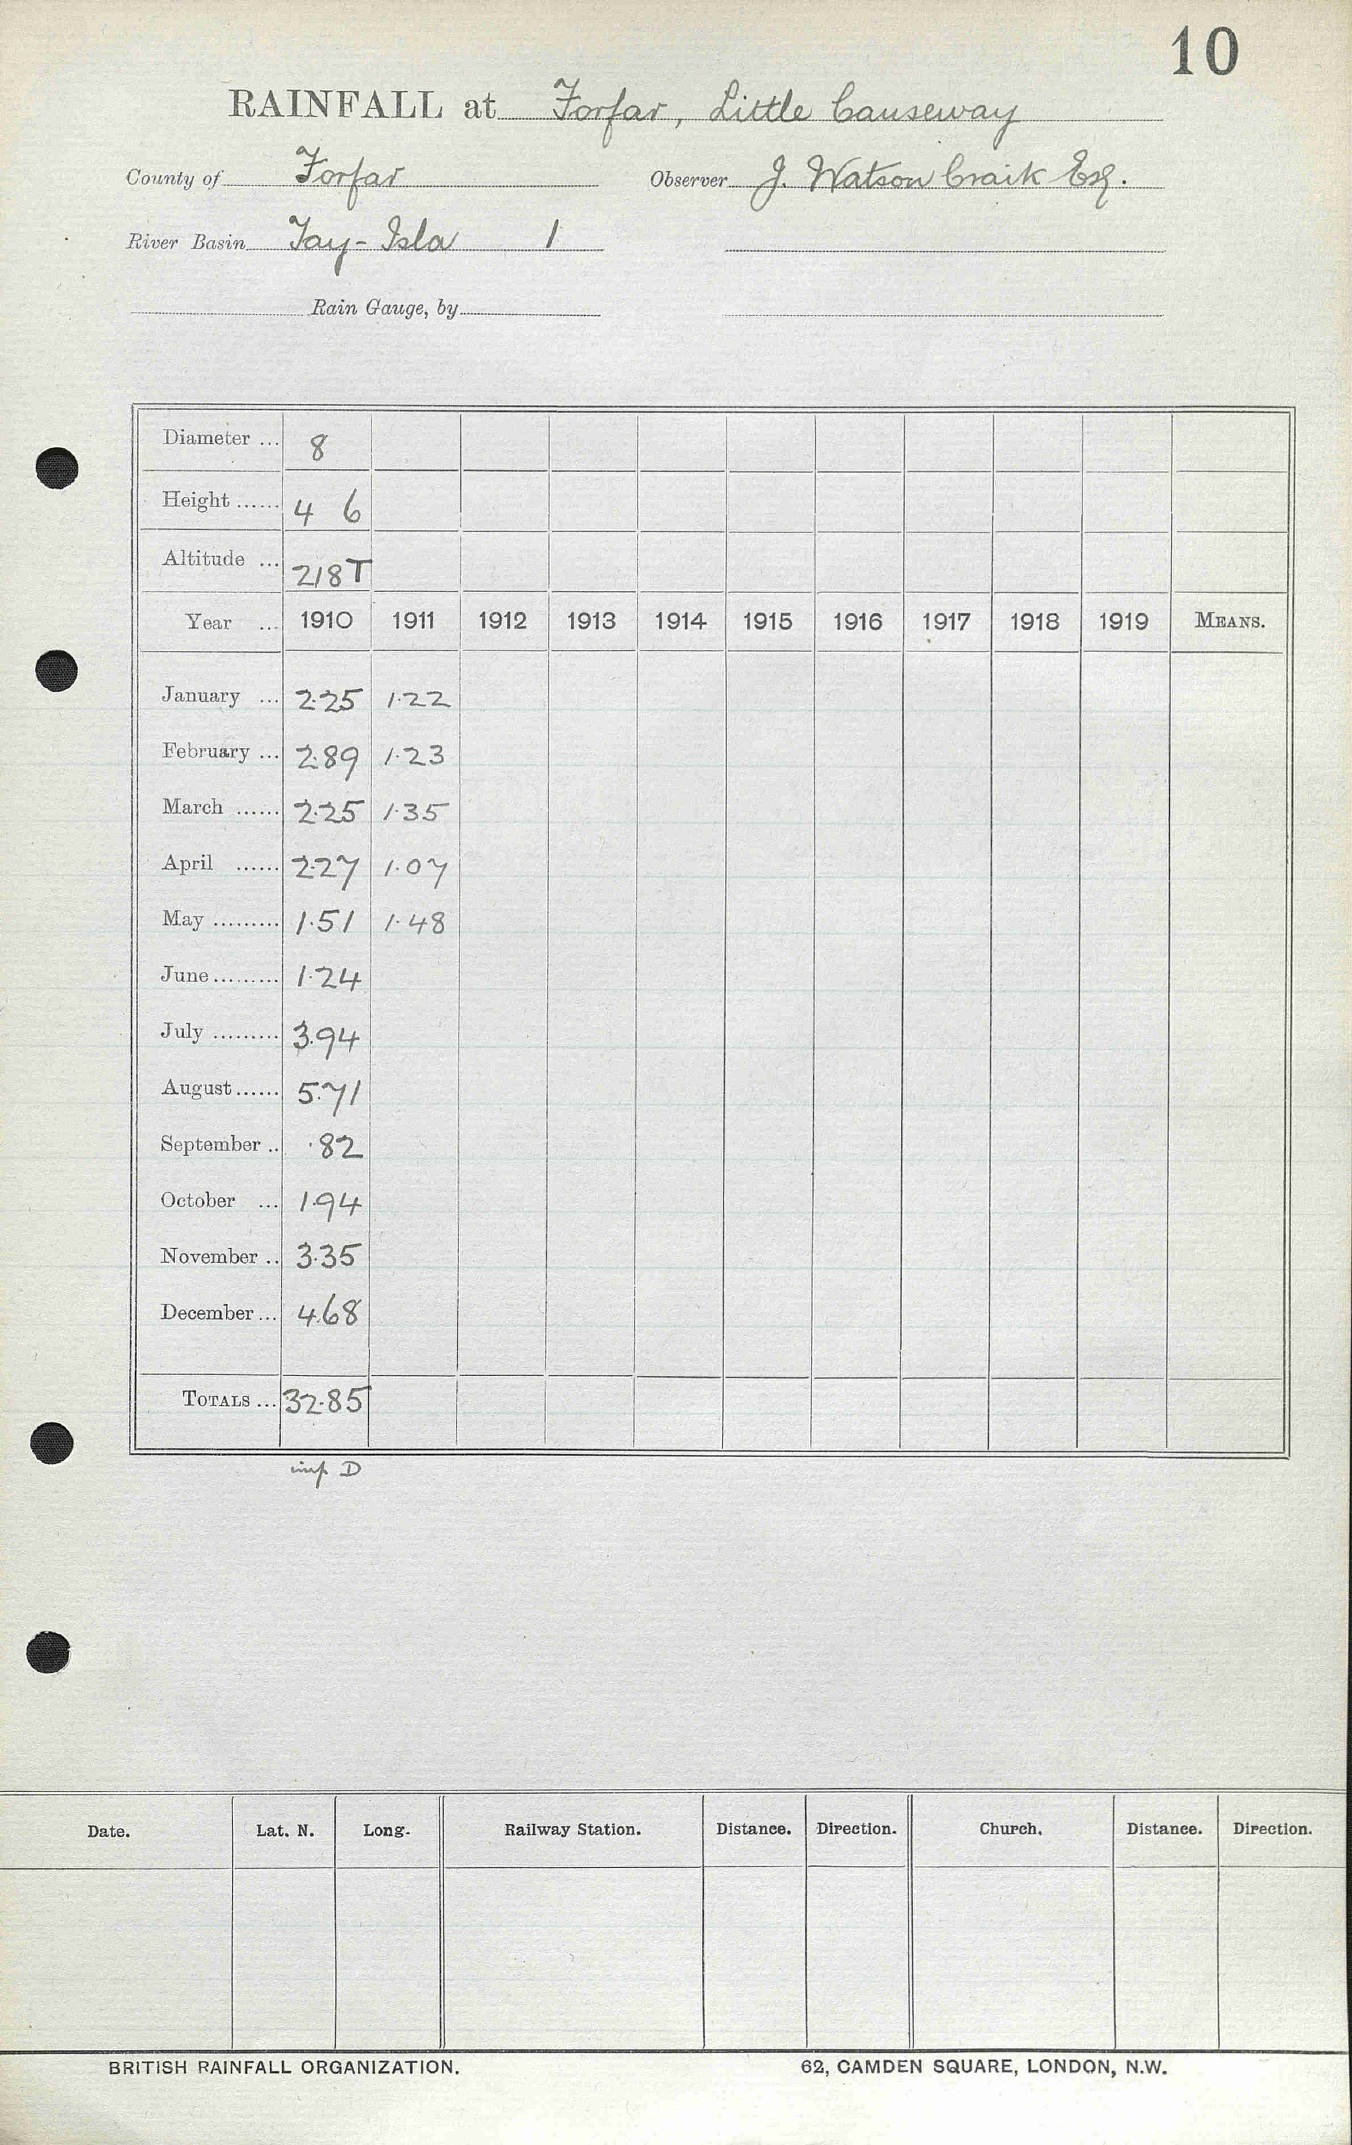 10
RAINFALL at Forfar, Little Causeway
County of Forfar Observer J. Watson Craik Esq.
River Basin Tay - Isla 1
Rain Gauge, by
Diameter ... 8
Height ...... 4 6
Altitude ... 218T
Year ... 1910 1911 1912 1913 1914 1915 1916 1917 1918 1919 MEANS.
January ... 2.25 1.22
February ... 2.89 1.23
March ...... 2.25 1.35
April ...... 2.27 1.07
May ......... 1.51 1.48
June......... 1.24
July ......... 3.94
August...... 5.71
September .. .82
October ... 1.94
November .. 3.35
December ... 4.68
TOTALS ... 32.85
inf. D
Date. Lat. N. Long. Railway Station. Distance. Direction. Church. Distance. Direction.
BRITISH RAINFALL ORGANIZATION. 62, CAMDEN SQUARE, LONDON, N.W.